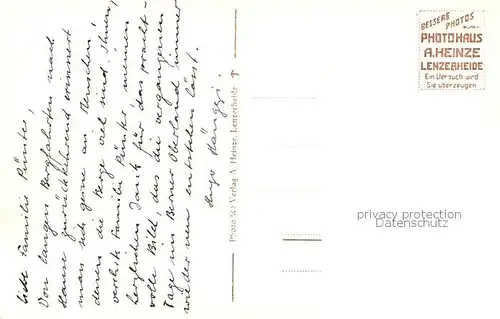 Liebe Familie Pünter,
Von langen Bergfahrten nach
Hause zurückkehrend erinnert
man sich gerne an Menschen,
denen die Berge viel sind. Ihnen,
verehrte Familie Pünter, meinen
herzlichen Dank für das pracht-
volle Bild, das die vergangenen
Tage im Berner Oberland immer
wieder neu entstehen lässt.
Hugo Hänggi.
Photo & Verlag A. Heinze, Lenzerheide
BESSERE PHOTOS
PHOTOHAUS
A. HEINZE
LENZERHEIDE
Ein Versuch wird
Sie überzeugen
privacy protection
Datenschutz